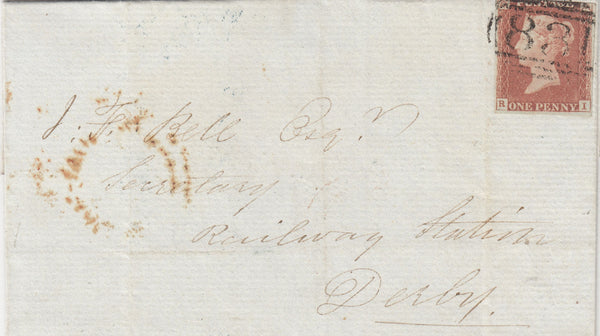 831
R ONE PENNY I
J. F. Bell Esqr
Secretary
Railway Station
Derby.